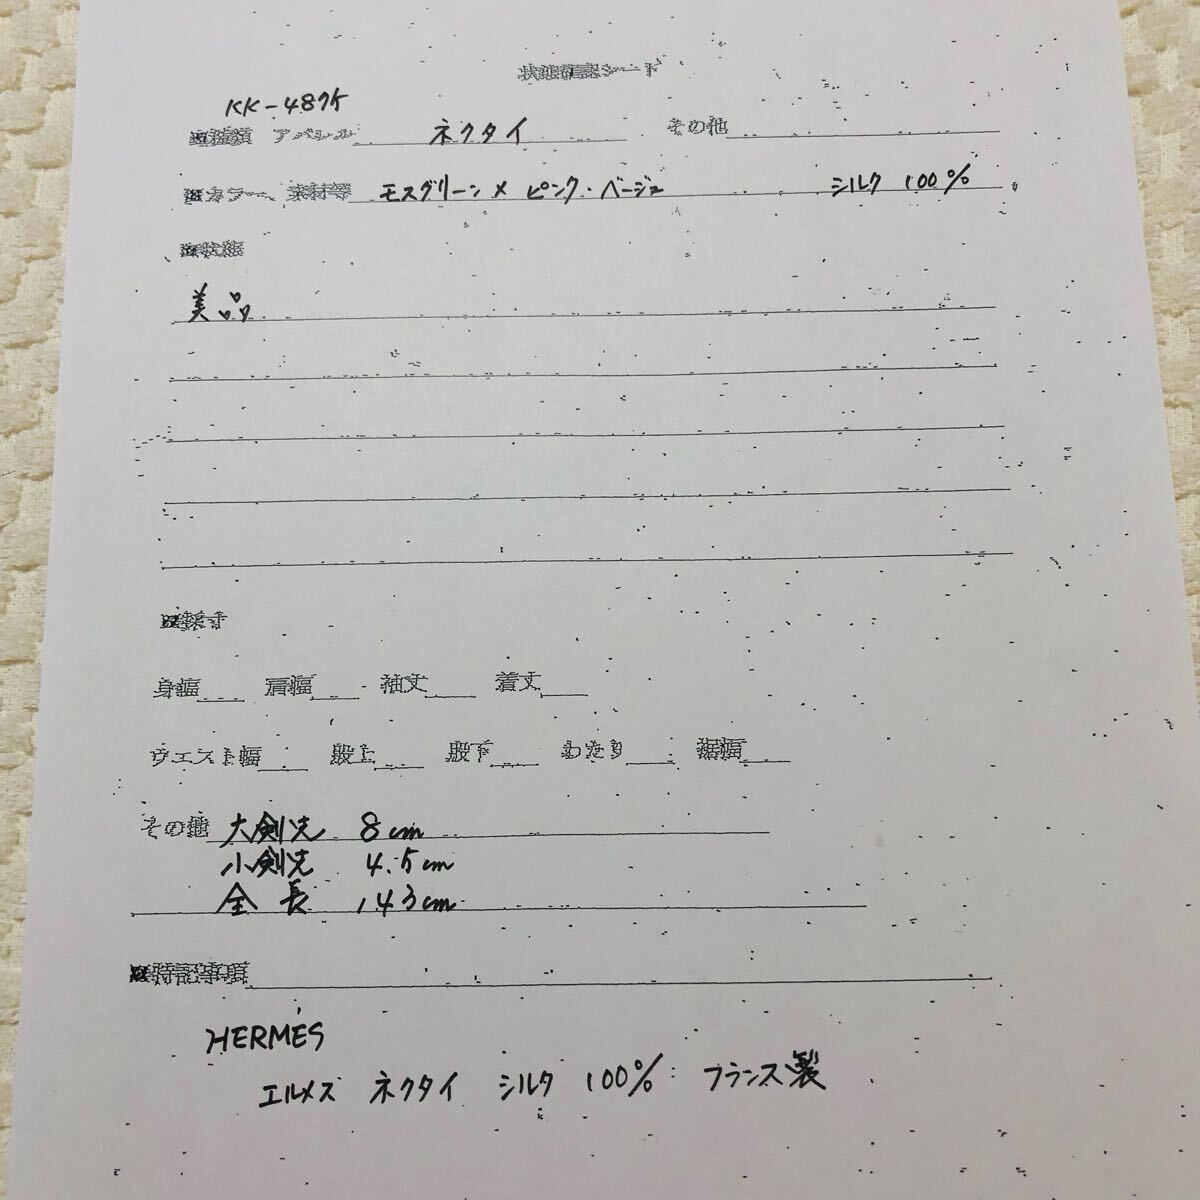 状態確認シート
KK-4875
※種類 アパレル ネクタイ その他
※カラー、素材等 モスグリーン×ピンク・ベージュ シルク 100%
※状態
美品
※採寸
身幅 肩幅 袖丈 着丈
ウエスト幅 股上 股下 わたり 裾幅
その他 大剣先 8cm
小剣先 4.5cm
全長 143cm
※特記事項
HERMÈS
エルメス ネクタイ シルク 100% フランス製